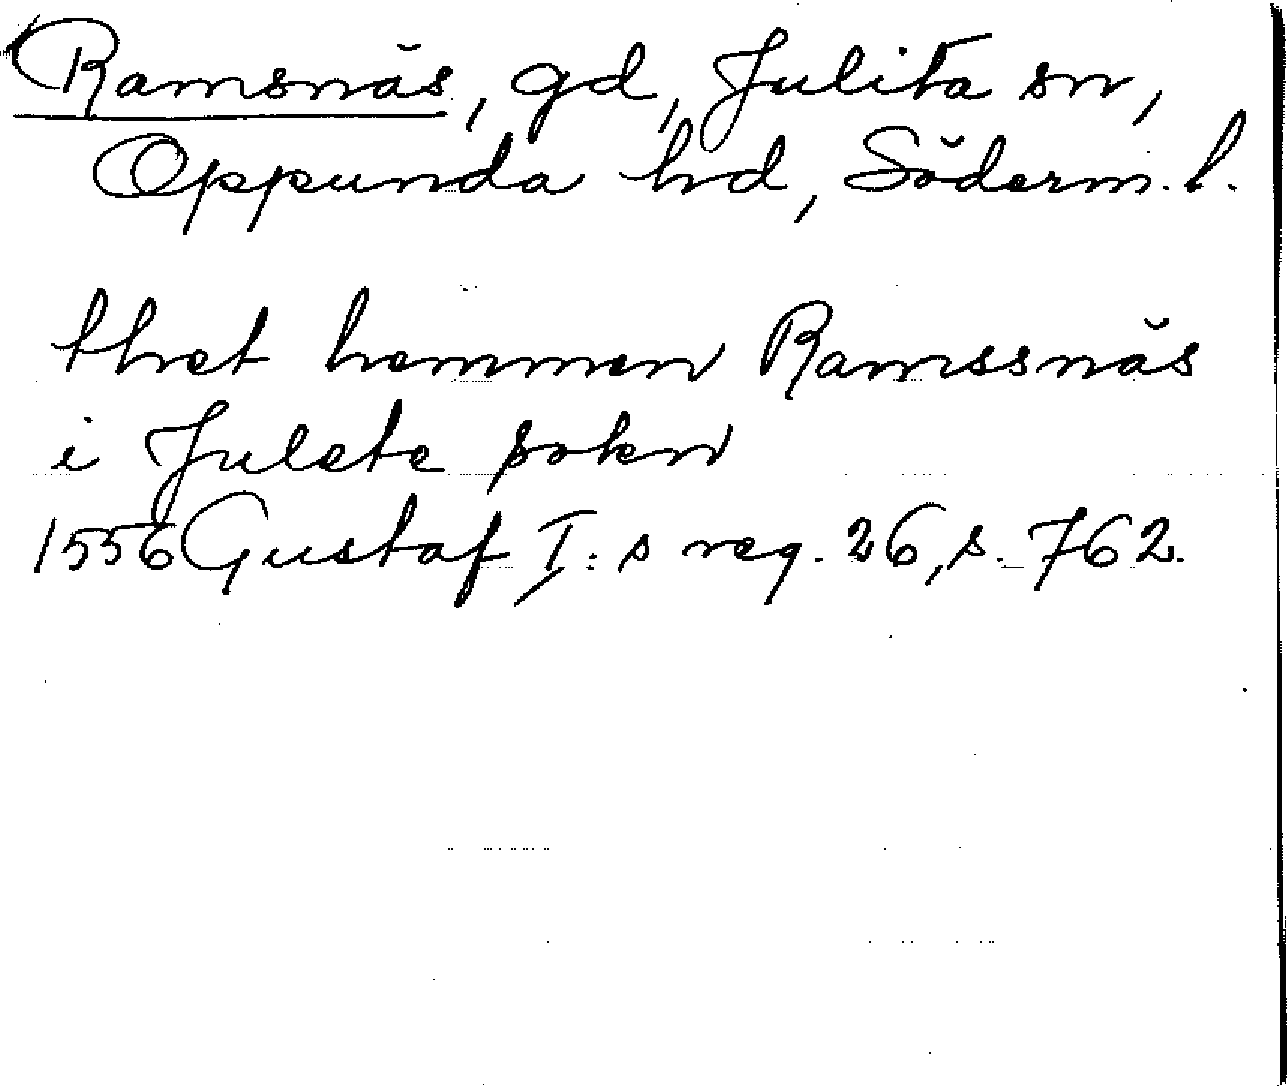 Ramsnäs, gd, Julita sn,
Oppunda hd, Söderm. l.
thet hemmen Ramssnäs
i Julete sokn
1556 Gustaf I:s reg. 26, s. 762.